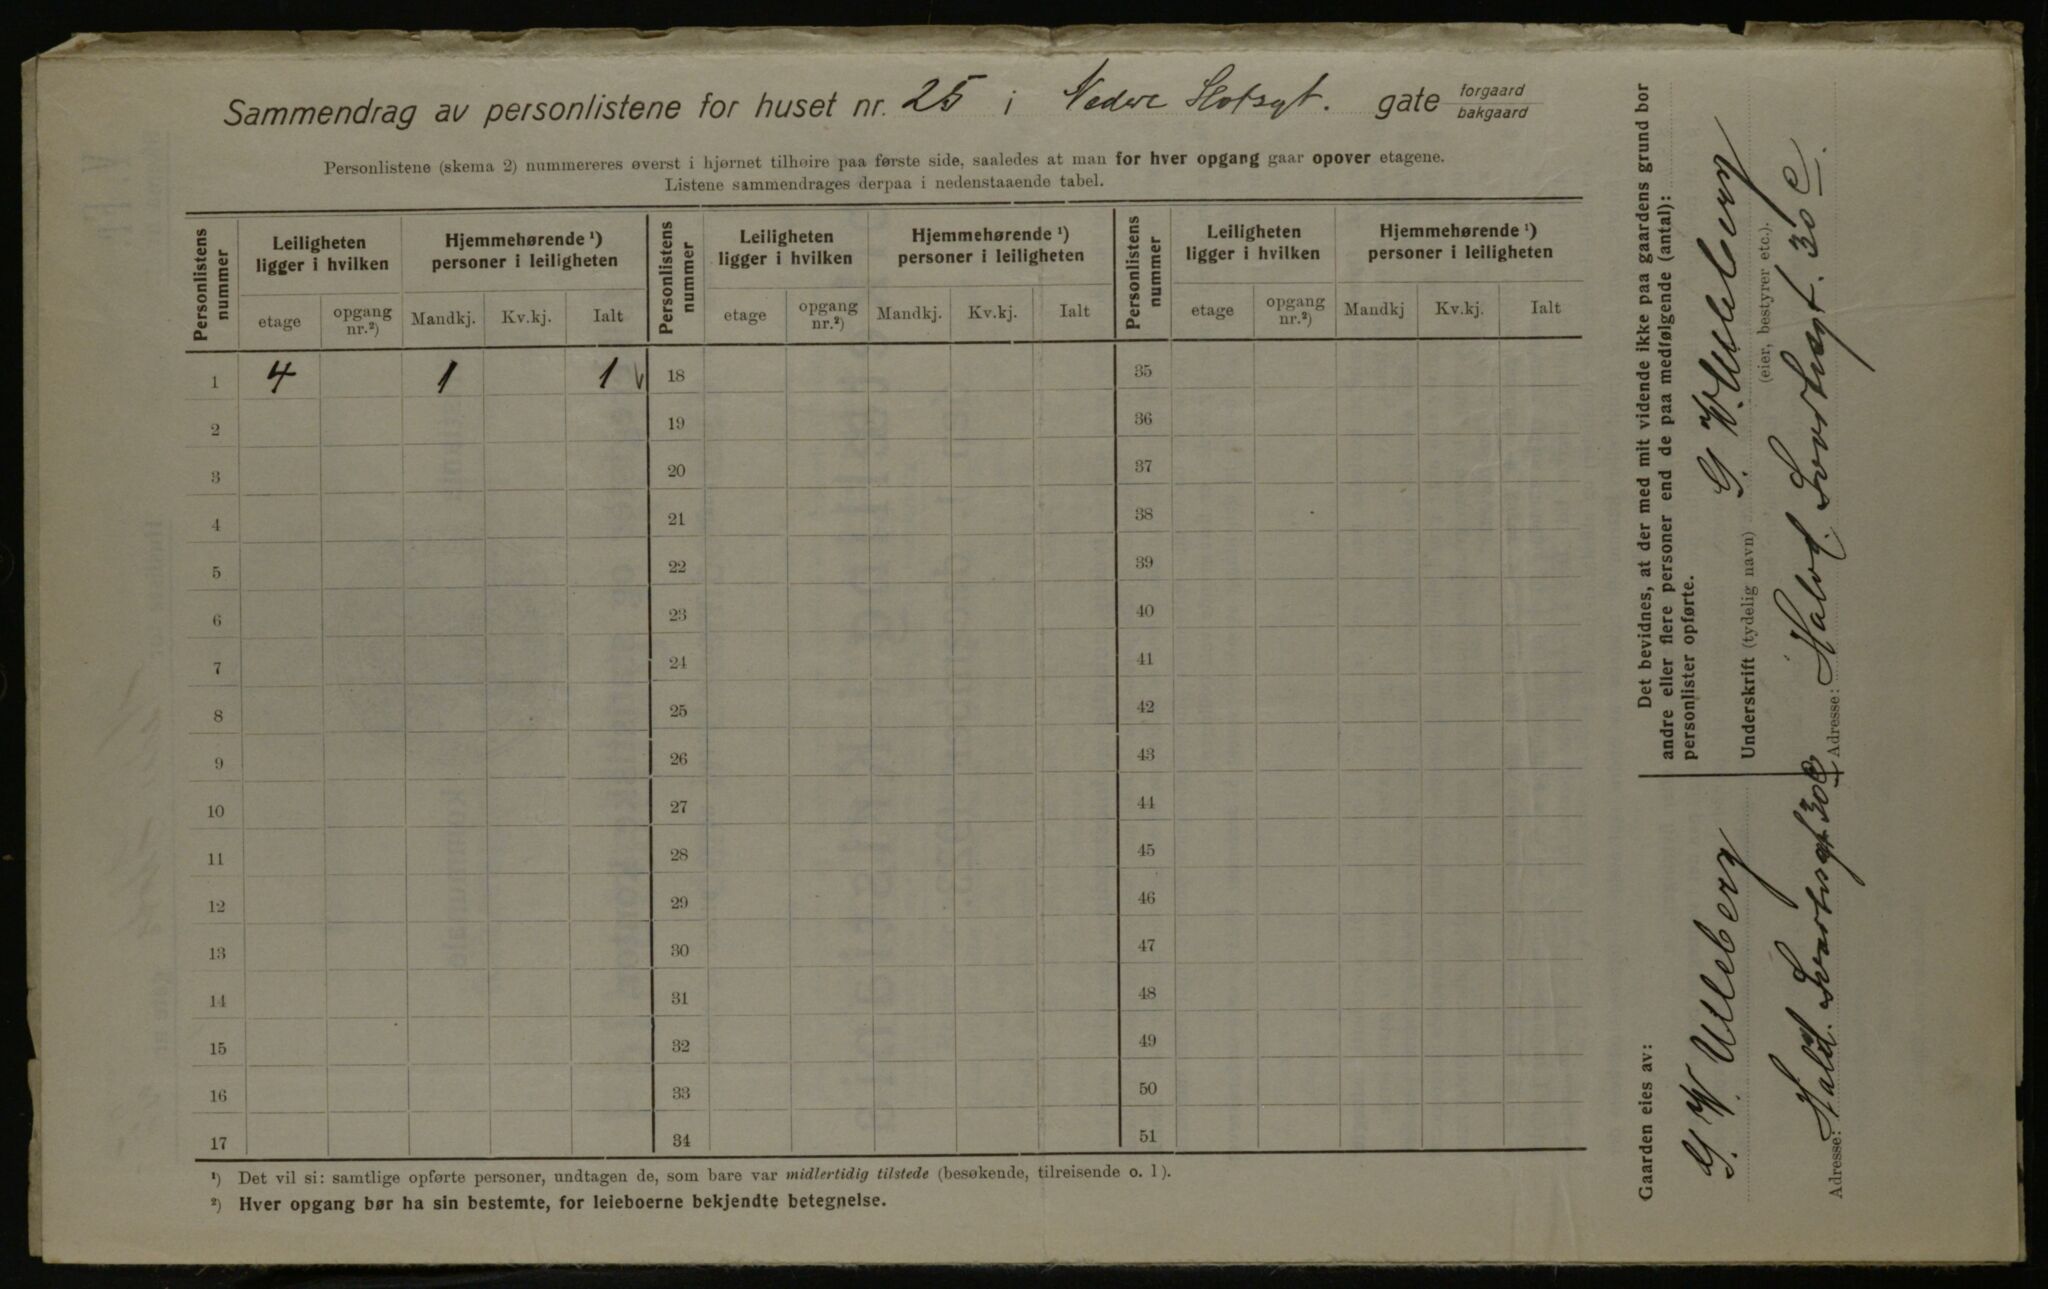 Sammendrag av personlistene for huset nr. 25 i Nedre Slotsgt. gate forgaard
bakgaard
Personlistene (skema 2) nummereres øverst i hjørnet tilhøire paa første side, saaledes at man for hver opgang gaar opover etagene.
Listene sammendrages derpaa i nedenstaaende tabel.
Personlistens nummer | Leiligheten ligger i hvilken | Hjemmehørende ¹) personer i leiligheten | Personlistens nummer | Leiligheten ligger i hvilken | Hjemmehørende ¹) personer i leiligheten | Personlistens nummer | Leiligheten ligger i hvilken | Hjemmehørende ¹) personer i leiligheten
etage | opgang nr.²) | Mandkj. | Kv.kj. | Ialt | etage | opgang nr.²) | Mandkj. | Kv.kj. | Ialt | etage | opgang nr.²) | Mandkj | Kv.kj. | Ialt
1 | 4 | 1 | 1 | 18 | 35
2 | 19 | 36
3 | 20 | 37
4 | 21 | 38
5 | 22 | 39
6 | 23 | 40
7 | 24 | 41
8 | 25 | 42
9 | 26 | 43
10 | 27 | 44
11 | 28 | 45
12 | 29 | 46
13 | 30 | 47
14 | 31 | 48
15 | 32 | 49
16 | 33 | 50
17 | 34 | 51
¹) Det vil si: samtlige opførte personer, undtagen de, som bare var midlertidig tilstede (besøkende, tilreisende o. l).
²) Hver opgang bør ha sin bestemte, for leieboerne bekjendte betegnelse.
Det bevidnes, at der med mit vidende ikke paa gaardens grund bor
andre eller flere personer end de paa medfølgende (antal):
personlister opførte.
G. W. Ulleberg
Underskrift (tydelig navn)
(eier, bestyrer etc.).
Adresse: Halvd. Svartesgt. 30 C.
Gaarden eies av:
G. W. Ulleberg
Adresse: Halvd. Svartesgt 30 C